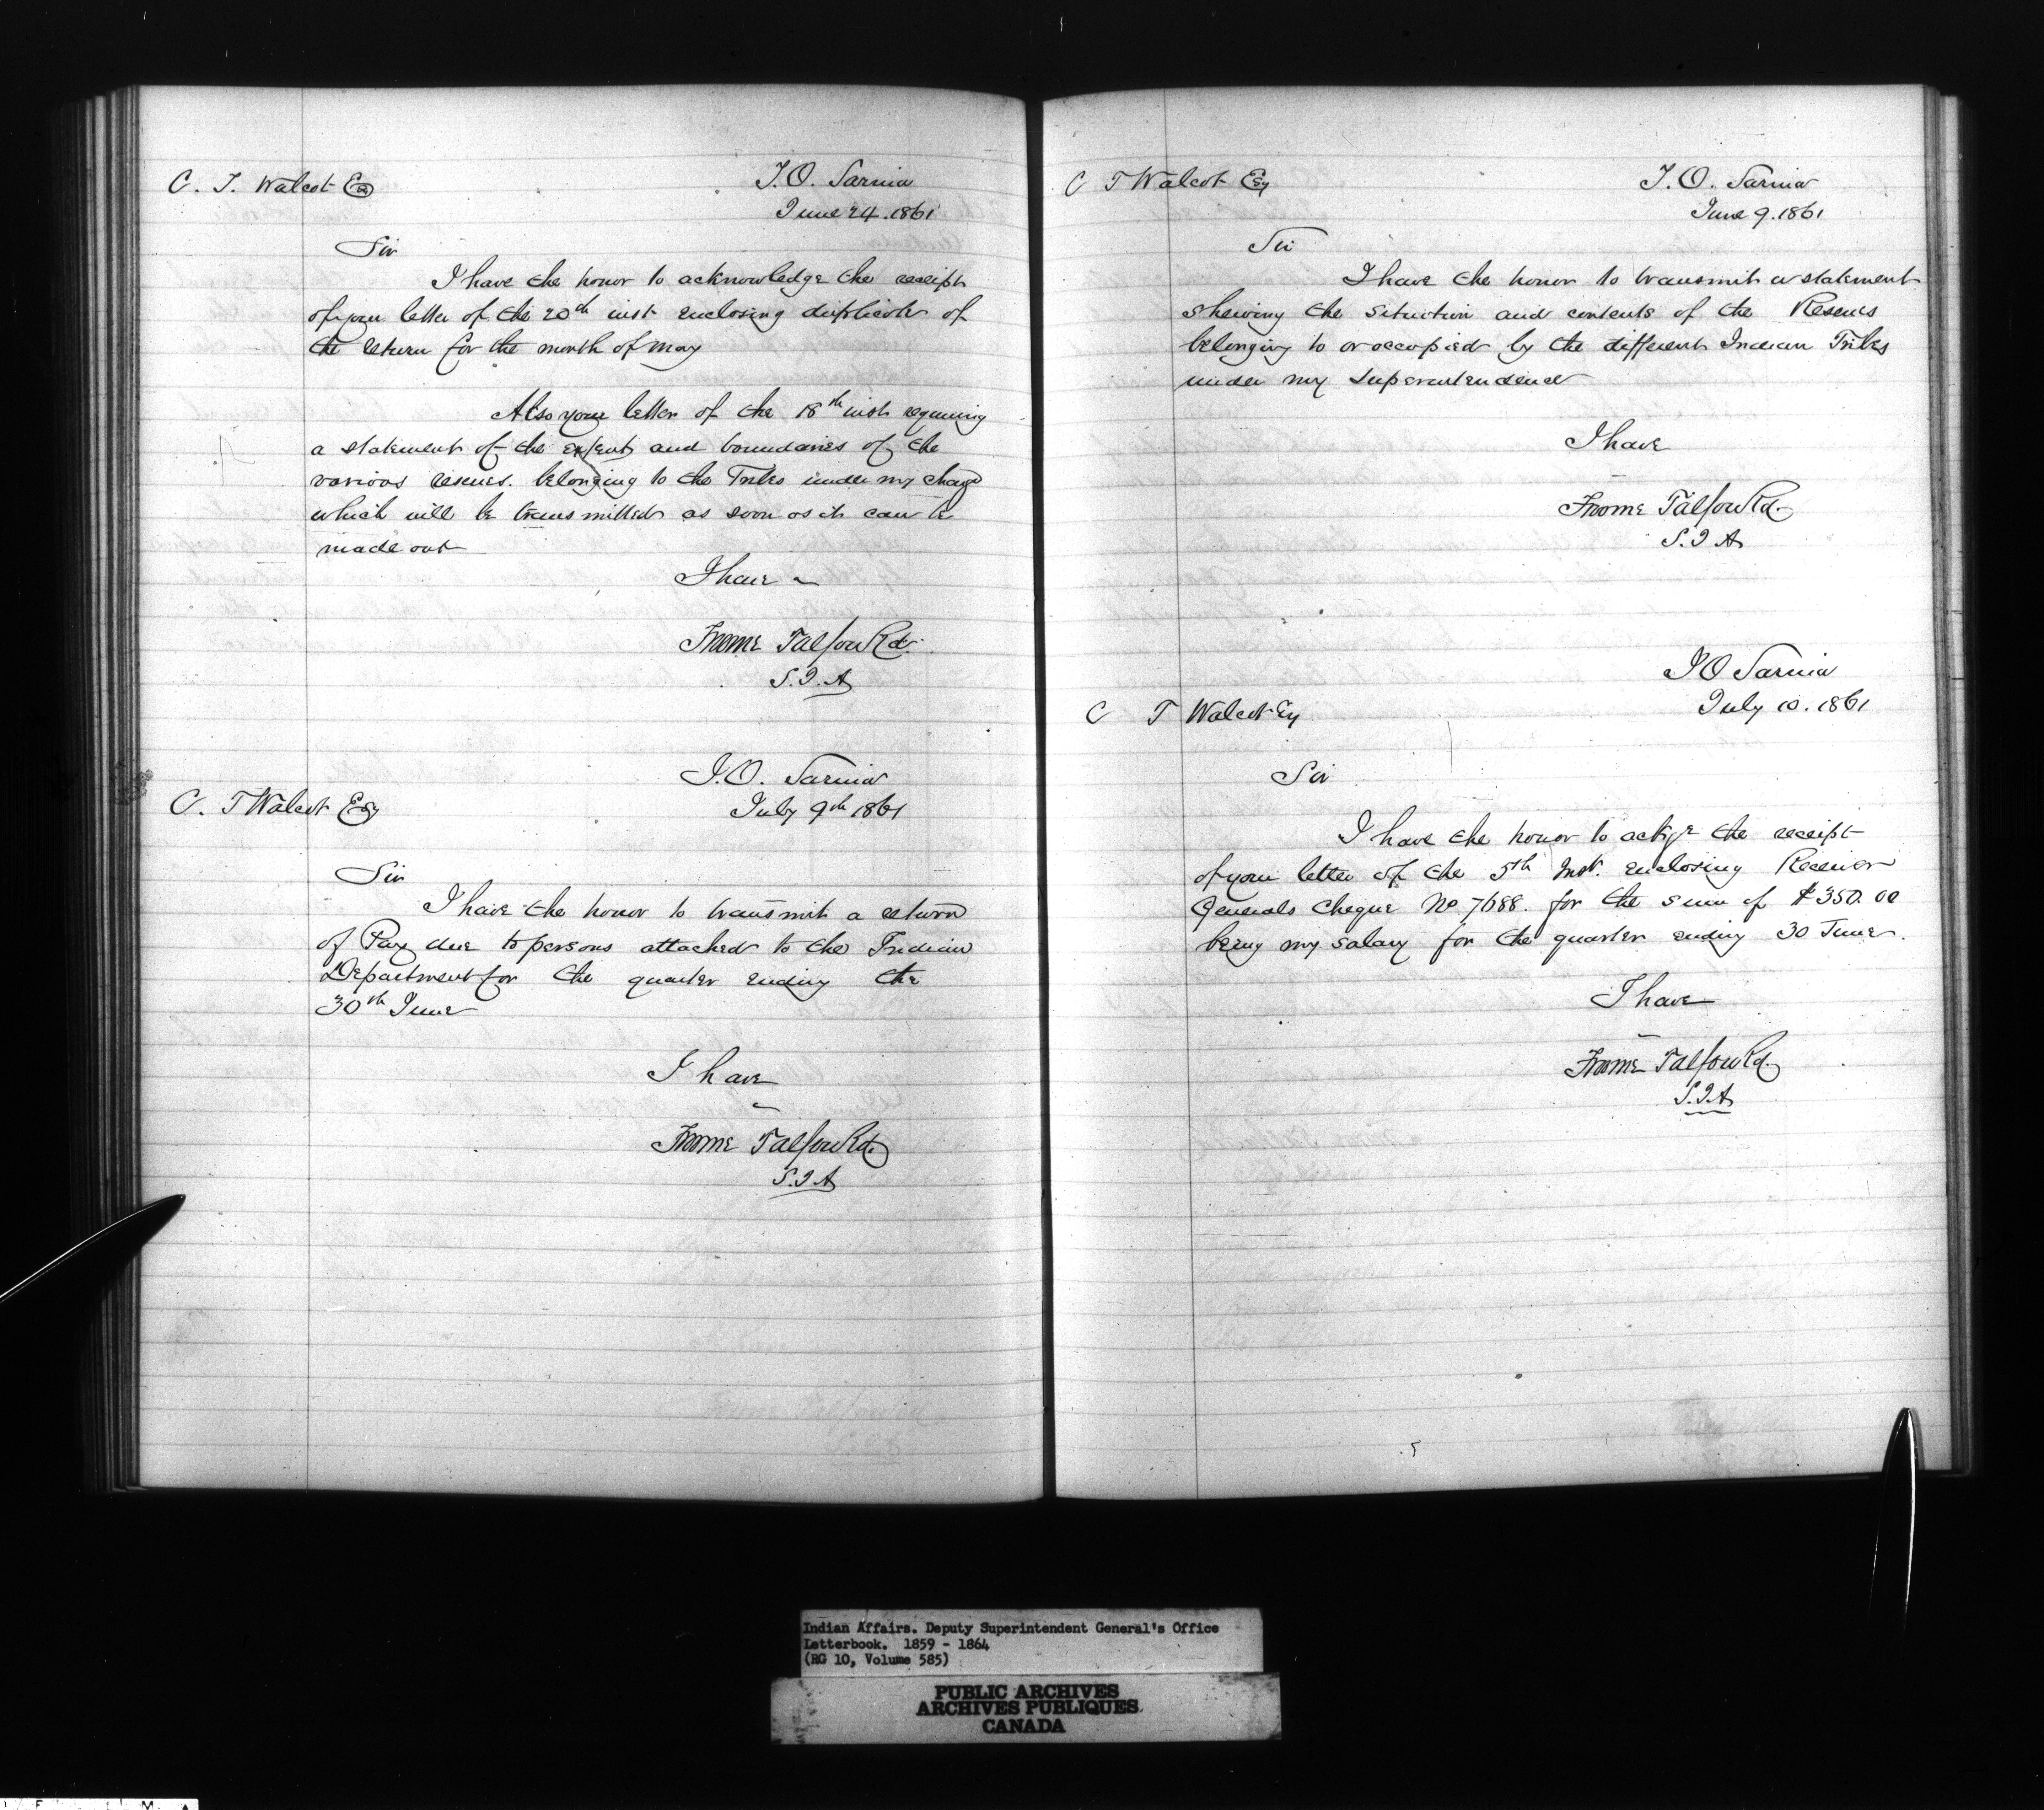 C. T. Walcot Esq
I.O. Sarnia
June 24. 1861
Sir
I have the honor to acknowledge the receipt
of your letter of the 20th inst enclosing duplicate of
the return for the month of May
Also your letter of the 18th inst requiring
a statement of the extent and boundaries of the
various reserves. belonging to the Tribes under my charge
which will be transmitted as soon as it can be
made out
I have
Froome Talfourd.
S.I.A
I.O. Sarnia
C. T Walcot Esq
July 9th 1861
Sir
I have the honor to transmit a return
of Pay due to persons attached to the Indian
Department for the quarter ending the
30th June
I have
Froome Talfourd.
S.I.A
C T Walcot Esq
I.O. Sarnia
June 9. 1861
Sir
I have the honor to transmit a statement
shewing the situation and contents of the Reserves
belonging to or occupied by the different Indian Tribes
under my Superintendence
I have
Froome Talfourd.
S.I.A
I O Sarnia
July 10. 1861
C T Walcot Esq
Sir
I have the honor to ackge the receipt
of your letter of the 5th Inst. enclosing Receiver
Generals Cheque No 7688. for the sum of $350.00
being my salary for the quarter ending 30 June.
I have
Froome Talfourd.
S.I.A
Indian Affairs. Deputy Superintendent General's Office
Letterbook. 1859 - 1864
(RG 10, Volume 585)
PUBLIC ARCHIVES
ARCHIVES PUBLIQUES
CANADA